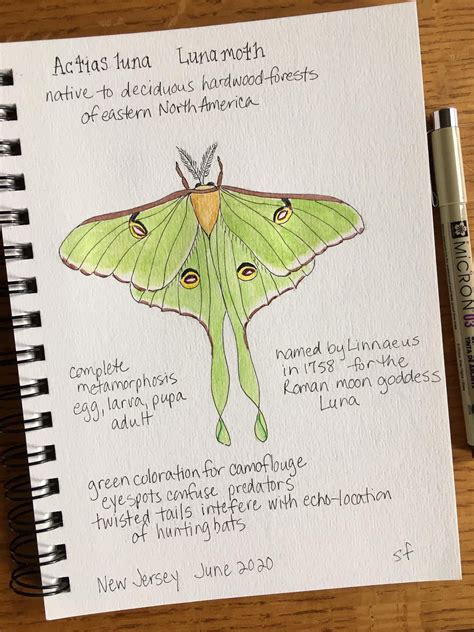 Actias luna Luna moth
native to deciduous hardwood forests
of eastern North America
complete
metamorphosis
egg, larva, pupa
adult
named by Linnaeus
in 1758 for the
Roman moon goddess
Luna
green coloration for camoflouge
eyespots confuse predators
twisted tails intefere with echo-location
of hunting bats
New Jersey June 2020
sf
MICRON 03